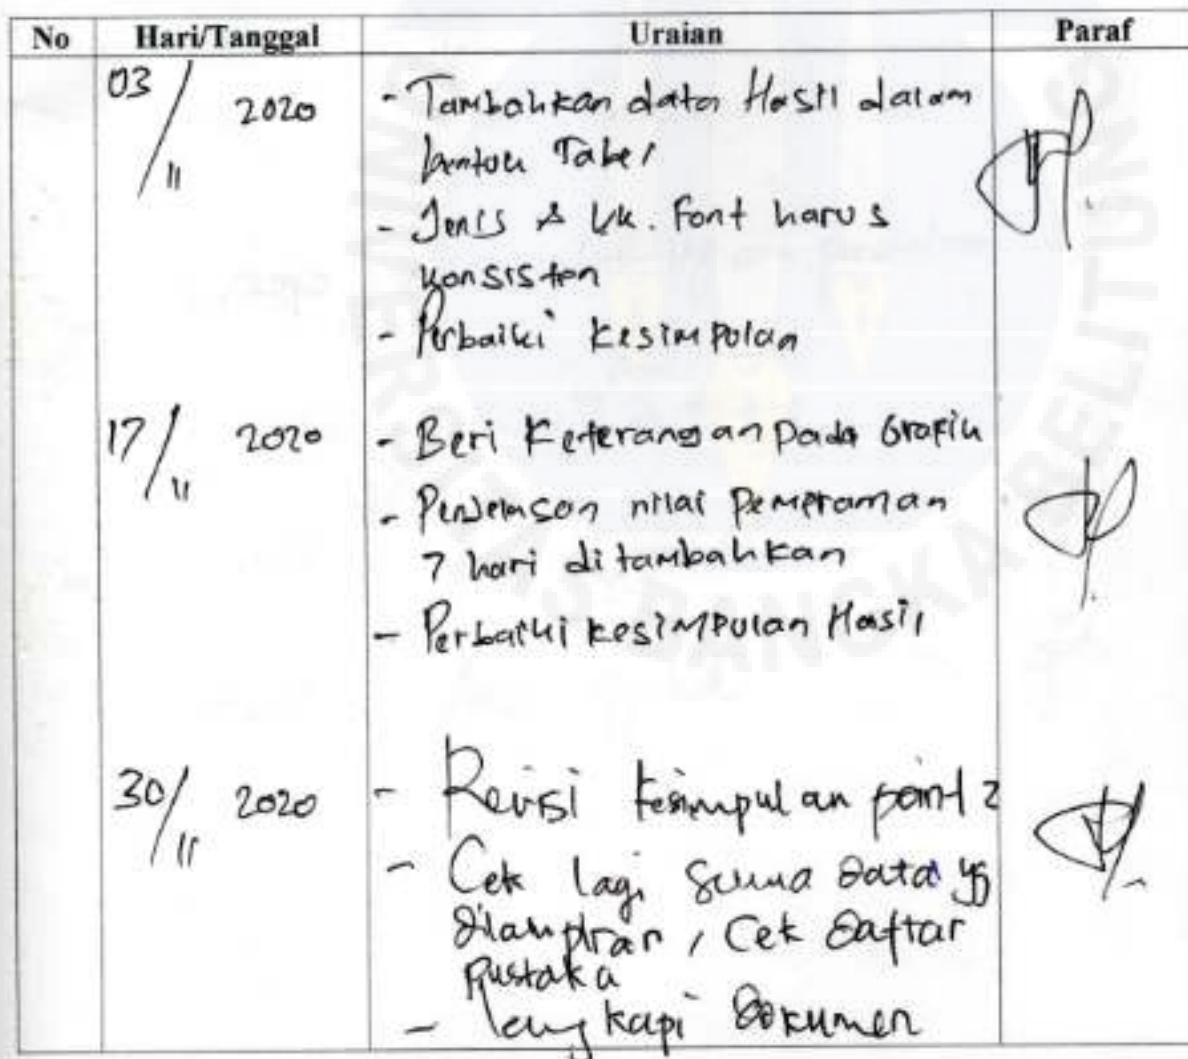 No Hari/Tanggal Uraian Paraf
03/11 2020 - Tambahkan data Hasil dalam
bentuk Tabel
- Jenis & Uk. Font harus
konsisten
- Perbaiki Kesimpulan
17/11 2020 - Beri Keterangan pada Grafik
- Penjelasan nilai Pemeraman
7 hari ditambahkan
- Perbaiki kesimpulan Hasil
30/11 2020 - Revisi kesimpulan point 2
- Cek lagi semua data yg
dilampiran, Cek daftar
pustaka
- lengkapi dokumen
BANGKA BELITUNG